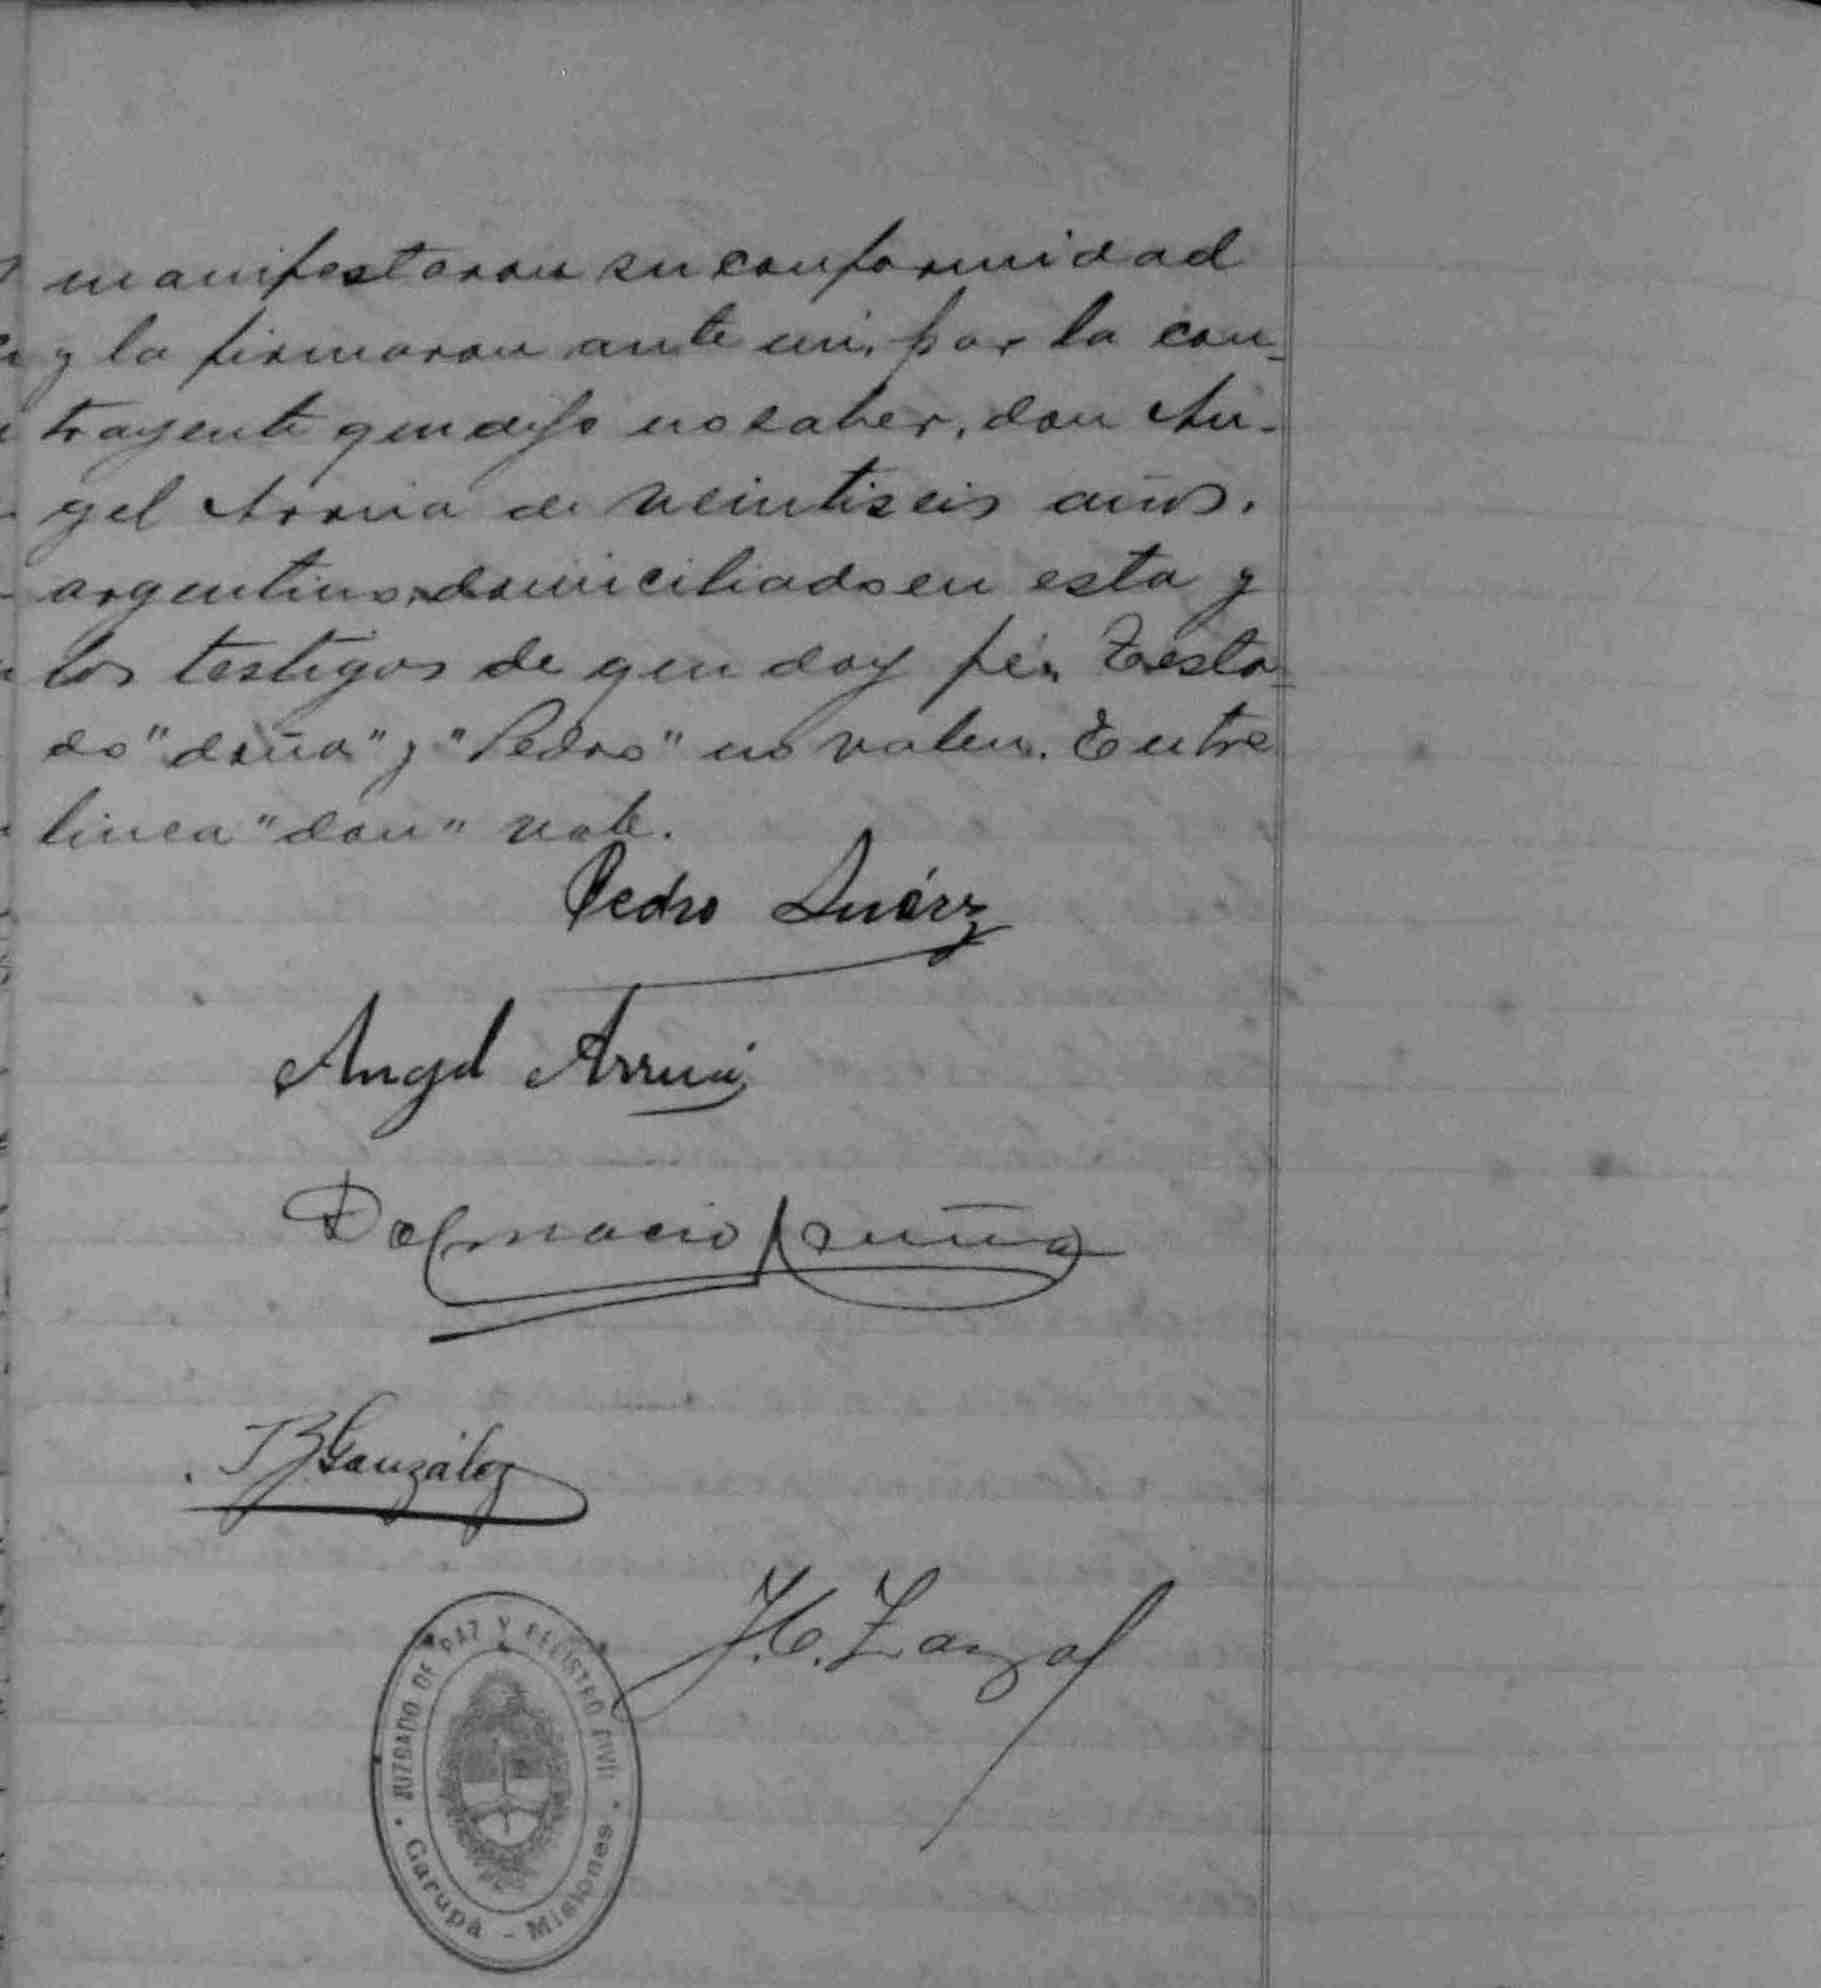 manifestaron su conformidad
y la firmaron ante mi, por la con-
trayente que dijo no saber, don An-
gel Arrua de veintiseis años,
argentino, domiciliado en esta y
los testigos de que doy fé. Testa-
do "doña" y "Pedro" no valen. Entre
linea "don" vale.
Pedro Suárez
Angel Arrua
Dalmacio Acuña
González
J. C. Zarza
JUZGADO DE PAZ Y REGISTRO CIVIL
Garupá - Misiones